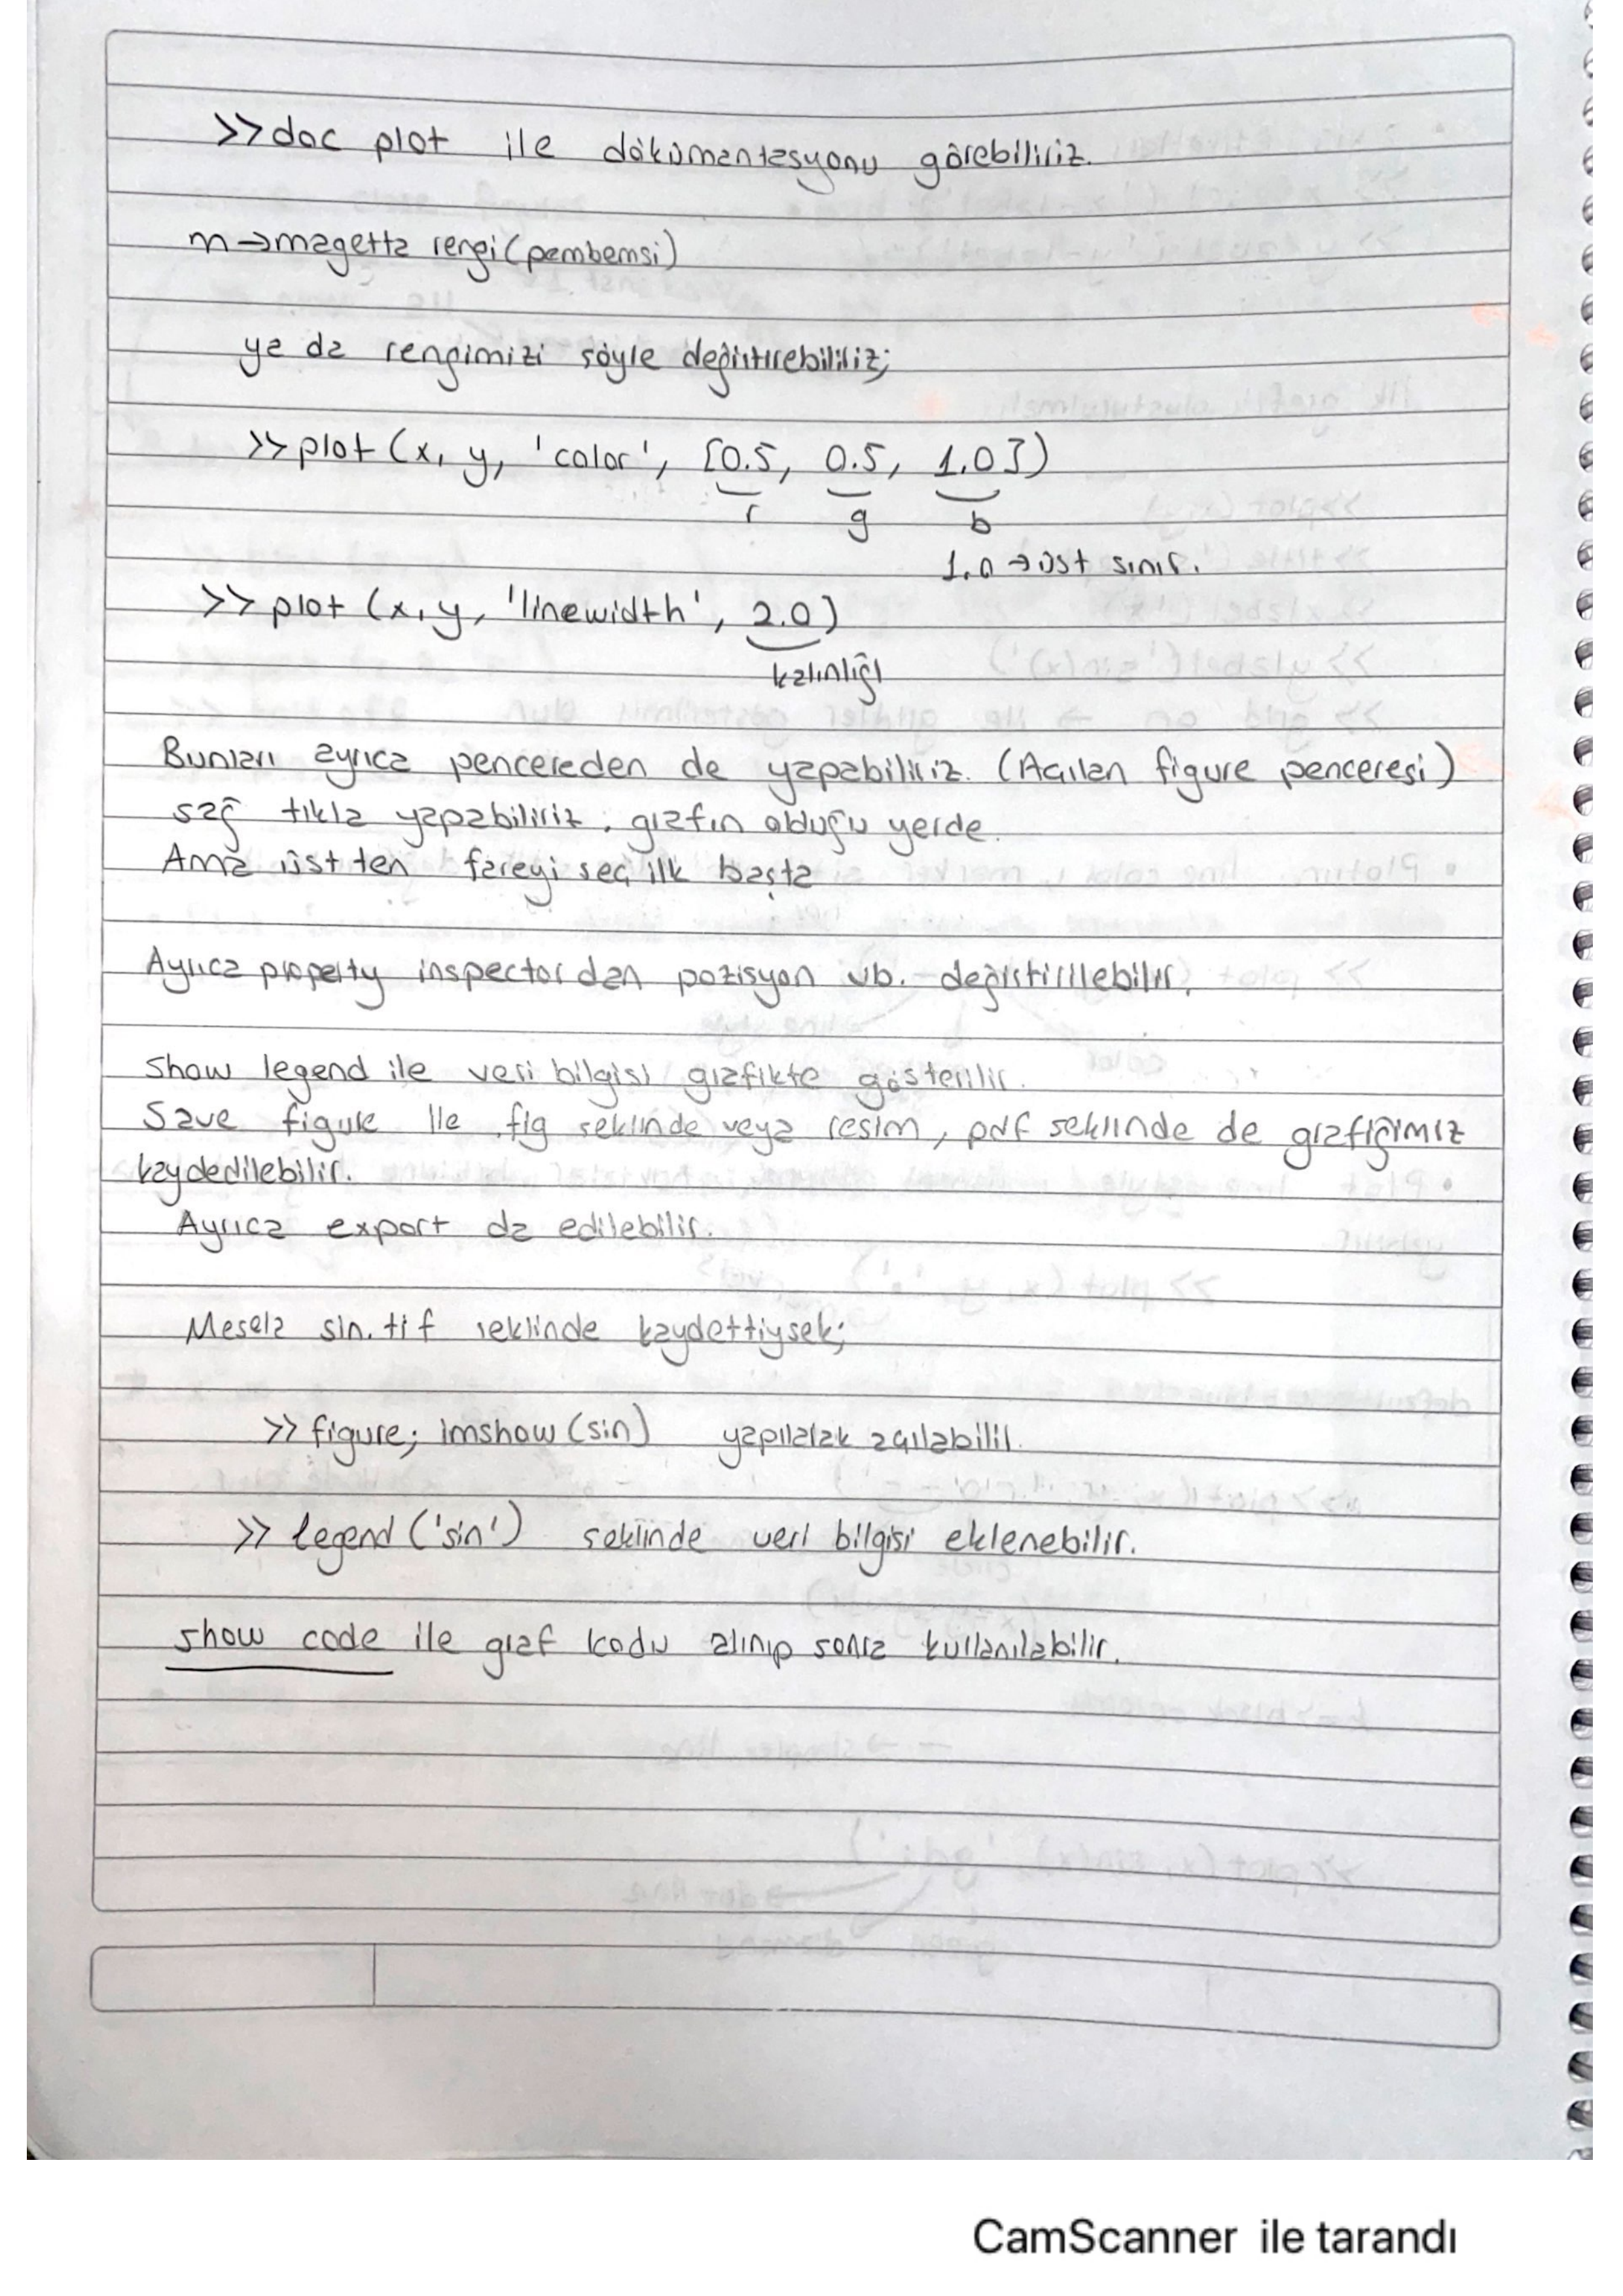 >>doc plot ile dökümantasyonu görebiliriz.
m→magetta rengi(pembemsi)
ya da rengimizi söyle değiştirebiliriz;
>>plot (x, y, 'color', [0.5, 0.5, 1.0])
r g b
1.0 →üst sınır.
>>plot (x, y, 'linewidth', 2.0)
kalınlığı
Bunları ayrıca pencereden de yapabiliriz. (Açılan figure penceresi)
sağ tıkla yapabiliriz. grafın olduğu yerde.
Ama üstten fareyi seç ilk başta
Ayrıca property inspectordan pozisyon vb. değiştirilebilir.
Show legend ile veri bilgisi grafikte gösterilir.
Save figure ile .fig seklinde veya resim, pdf seklinde de grafiğimiz
kaydedilebilir.
Ayrıca export da edilebilir.
Mesela sin.tif seklinde kaydettiysek;
>> figure; imshow(sin) yapılarak açılabilir.
>> legend ('sin') seklinde veri bilgisi eklenebilir.
show code ile graf kodu alınıp sonra kullanılabilir.
CamScanner ile tarandı